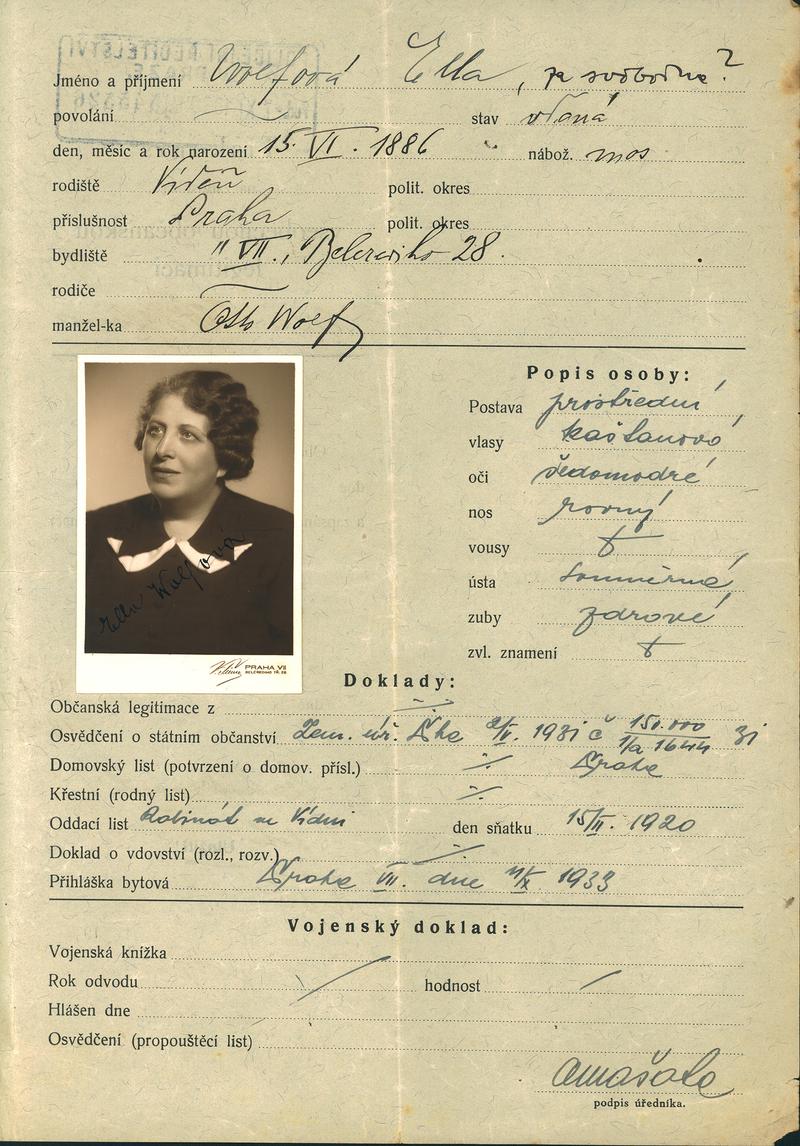 Jméno a příjmení Wolfová Ella, za svobodna?
povolání stav vdaná
den, měsíc a rok narození 15. VI. 1886 nábož. mos
rodiště Vídeň polit. okres
příslušnost Praha polit. okres
bydliště " VII., Belcrediho 28.
rodiče
manžel-ka Otto Wolf
Popis osoby:
Postava prostřední
vlasy kaštanové
oči šedomodré
nos rovný
vousy
ústa souměrná
zuby zdravé
zvl. znamení
Ella Wolfová
PRAHA VII
BELCREDIHO TŘ. 28
Doklady:
Občanská legitimace z
Osvědčení o státním občanství Zem. úř. 1931 č 150.000
Domovský list (potvrzení o domov. přísl.) Praha
Křestní (rodný list)
Oddací list Rabinát ve Vídni den sňatku 15/II. 1920
Doklad o vdovství (rozl., rozv.)
Přihláška bytová Praha VII. dne 1933
Vojenský doklad:
Vojenská knížka
Rok odvodu hodnost
Hlášen dne
Osvědčení (propouštěcí list)
podpis úředníka.